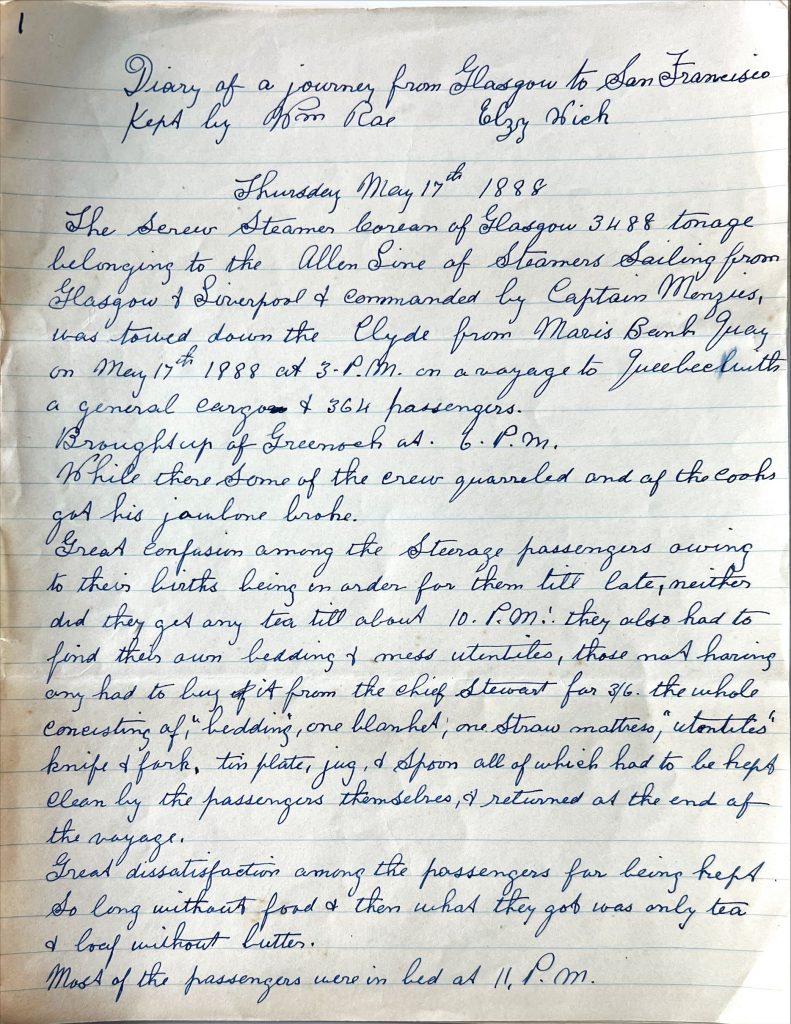 1
Diary of a journey from Glasgow to San Francisico
Kept by Wm Rae Elzy Wick
Thursday May 17th 1888
The Screw Steamer Corean of Glasgow 3488 tonage
belonging to the Allen Line of Steamers Sailing from
Glasgow & Liverpool & commanded by Captain Menzies,
was towed down the Clyde from Mavis Bank Quay
on May 17th 1888 at 3-P.M. on a voyage to Queebec with
a general cargo & 364 passengers.
Brought up of Greenock at. 6. P.M.
While there Some of the crew quarreled and of the cooks
got his jawbone broke.
Great confusion among the Steerage passengers owing
to their births being in order for them till late, neither
did they get any tea till about 10. P.M. they also had to
find their own bedding & mess utentiles, those not having
any had to buy it from the chief Stewart for 3/6. the whole
concisting of, "bedding", one blanket, one Straw mattress, "utentiles"
knife & fork, tin plate, jug, & Spoon all of which had to be kept
clean by the passengers themselves, & returned at the end of
the voyage.
Great dissatisfaction among the passengers for being kept
So long without food & then what they got was only tea
& loaf without butter.
Most of the passengers were in bed at 11, P.M.